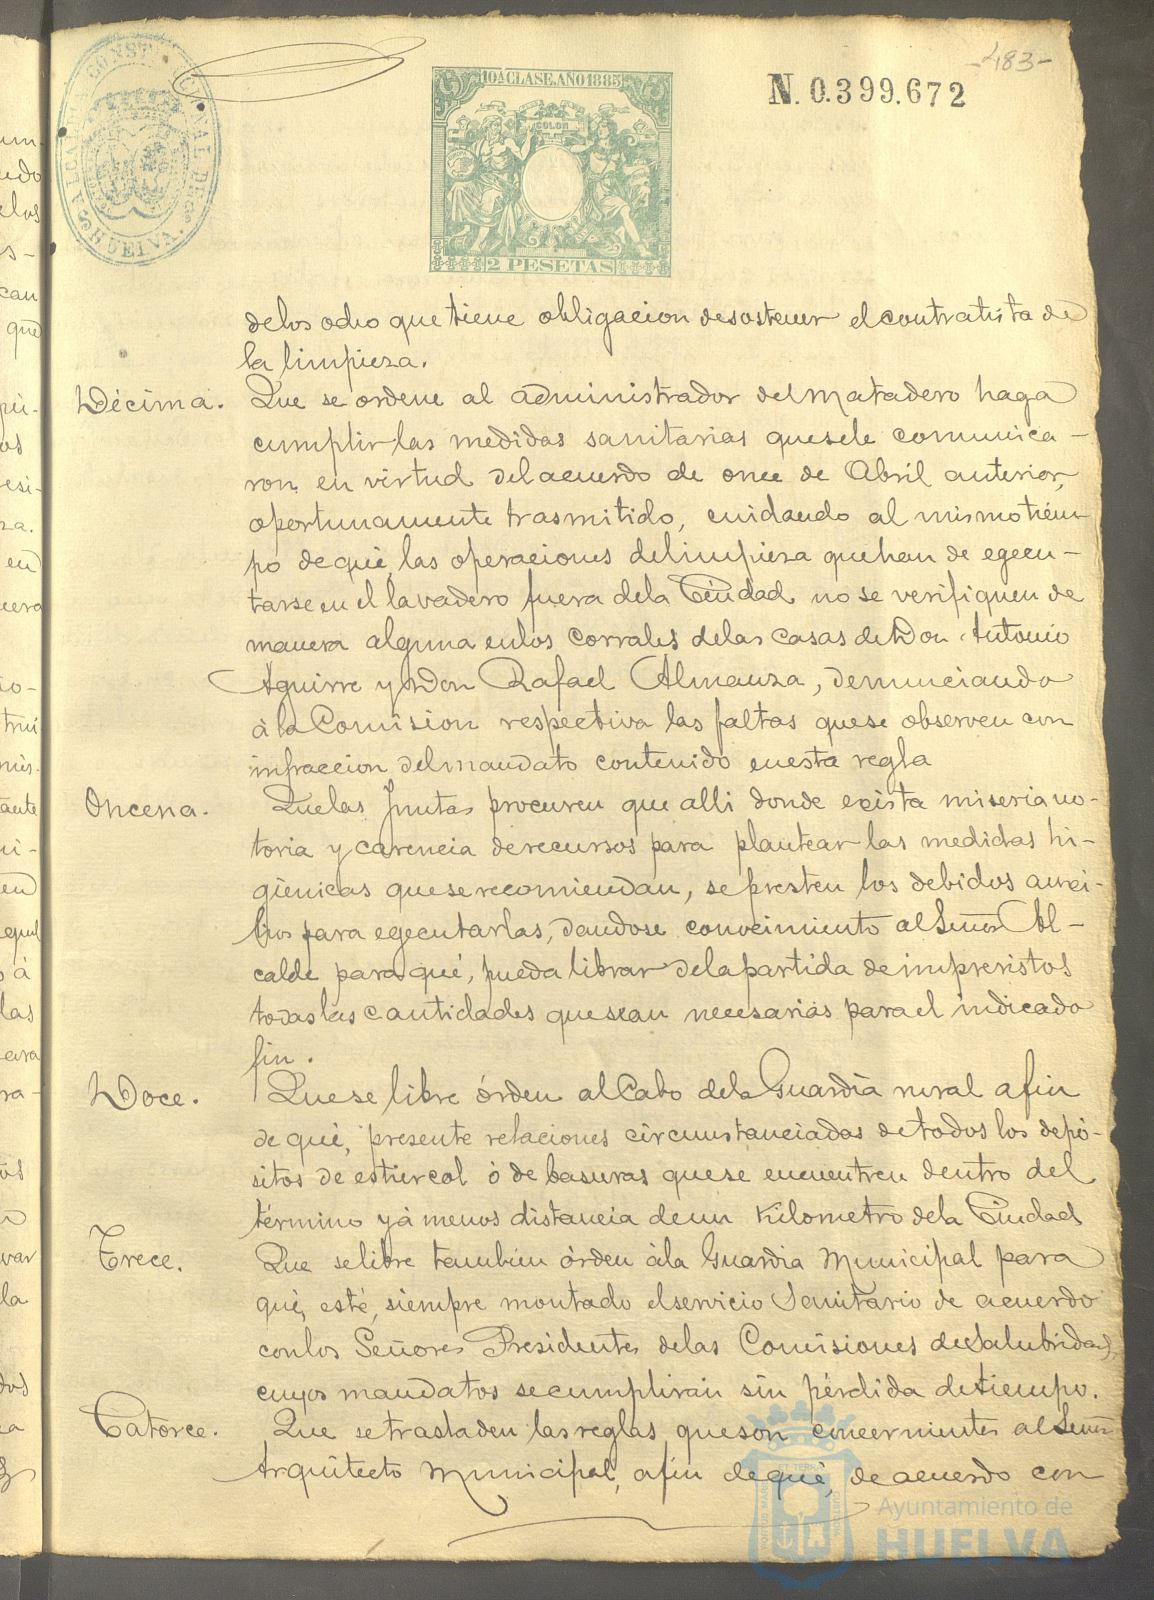 -183-
ALCALDIA CONSTITUCIONAL DE HUELVA.
10A CLASE. AÑO 1885
COLON
2 PESETAS
N. 0.399.672
de los ocho que tiene obligacion de sostener el contratista de
la limpieza.
Décima. Que se ordene al administrador del Matadero haga
cumplir las medidas sanitarias que se le comunica-
ron en virtud del acuerdo de once de Abril anterior,
oportunamente trasmitido, cuidando al mismo tiem-
po de qué, las operaciones de limpieza que han de egecu-
tarse en el lavadero fuera de la Ciudad no se verifiquen de
manera alguna en los corrales de las casas de Don Antonio
Aguirre y Don Rafael Almanza, denunciando
á la Comision respectiva las faltas que se observen con
infraccion del mandato contenido en esta regla
Oncena. Que las Juntas procuren que alli donde exista miseria no-
toria y carencia de recursos para plantear las medidas hi-
giénicas que se recomiendan, se presten los debidos auxi-
lios para egecutarlas, dandose conocimiento al Señor Al-
calde para qué, pueda librar de la partida de imprevistos
todas las cantidades que sean necesarias para el indicado
fin.
Doce. Que se libre órden al Cabo de la Guardia rural a fin
de qué, presente relaciones circunstanciadas de todos los depó-
sitos de estiercol ó de basuras que se encuentren dentro del
término y á menos distancia de un Kilometro de la Ciudad
Trece. Que se libre tambien órden á la Guardia Municipal para
qué, esté, siempre montado el servicio Sanitario de acuerdo
con los Señores Presidentes de las Comisiones de Salubridad,
cuyos mandatos se cumplirán sin pérdida de tiempo.
Catorce. Que se trasladen las reglas que son concernientes al Señor
Arquitecto Municipal, a fin de qué, de acuerdo con
Ayuntamiento de
HUELVA